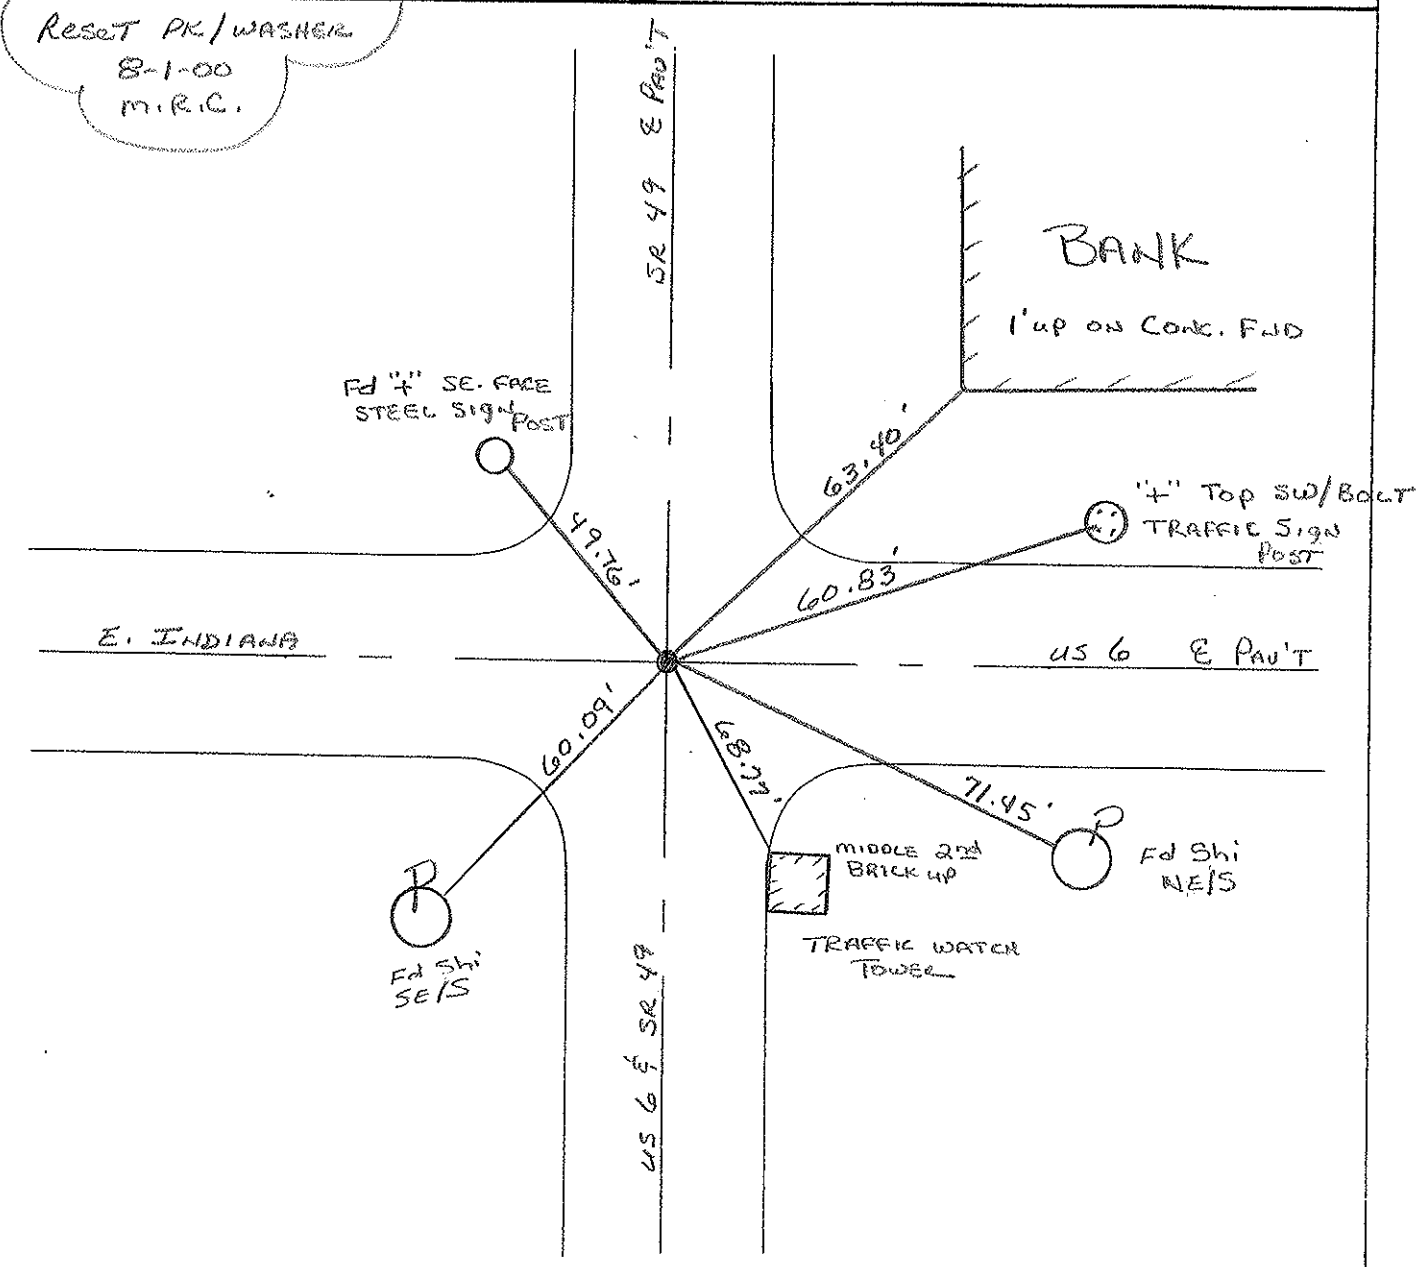 RESET PK/WASHER
8-1-00
M.R.C.
SR 49 ℄ PAV'T
BANK
1' UP ON CONC. FND
Fd "+" SE. FACE
STEEL SIGN POST
63.40'
"+" TOP SW/BOLT
TRAFFIC SIGN
POST
49.76'
60.83'
E. INDIANA
US 6 ℄ PAV'T
60.09'
68.77'
71.45'
MIDDLE 2nd
BRICK UP
Fd Shi
NE/S
P
P
TRAFFIC WATCH
TOWER
Fd Shi
SE/S
US 6 & SR 49